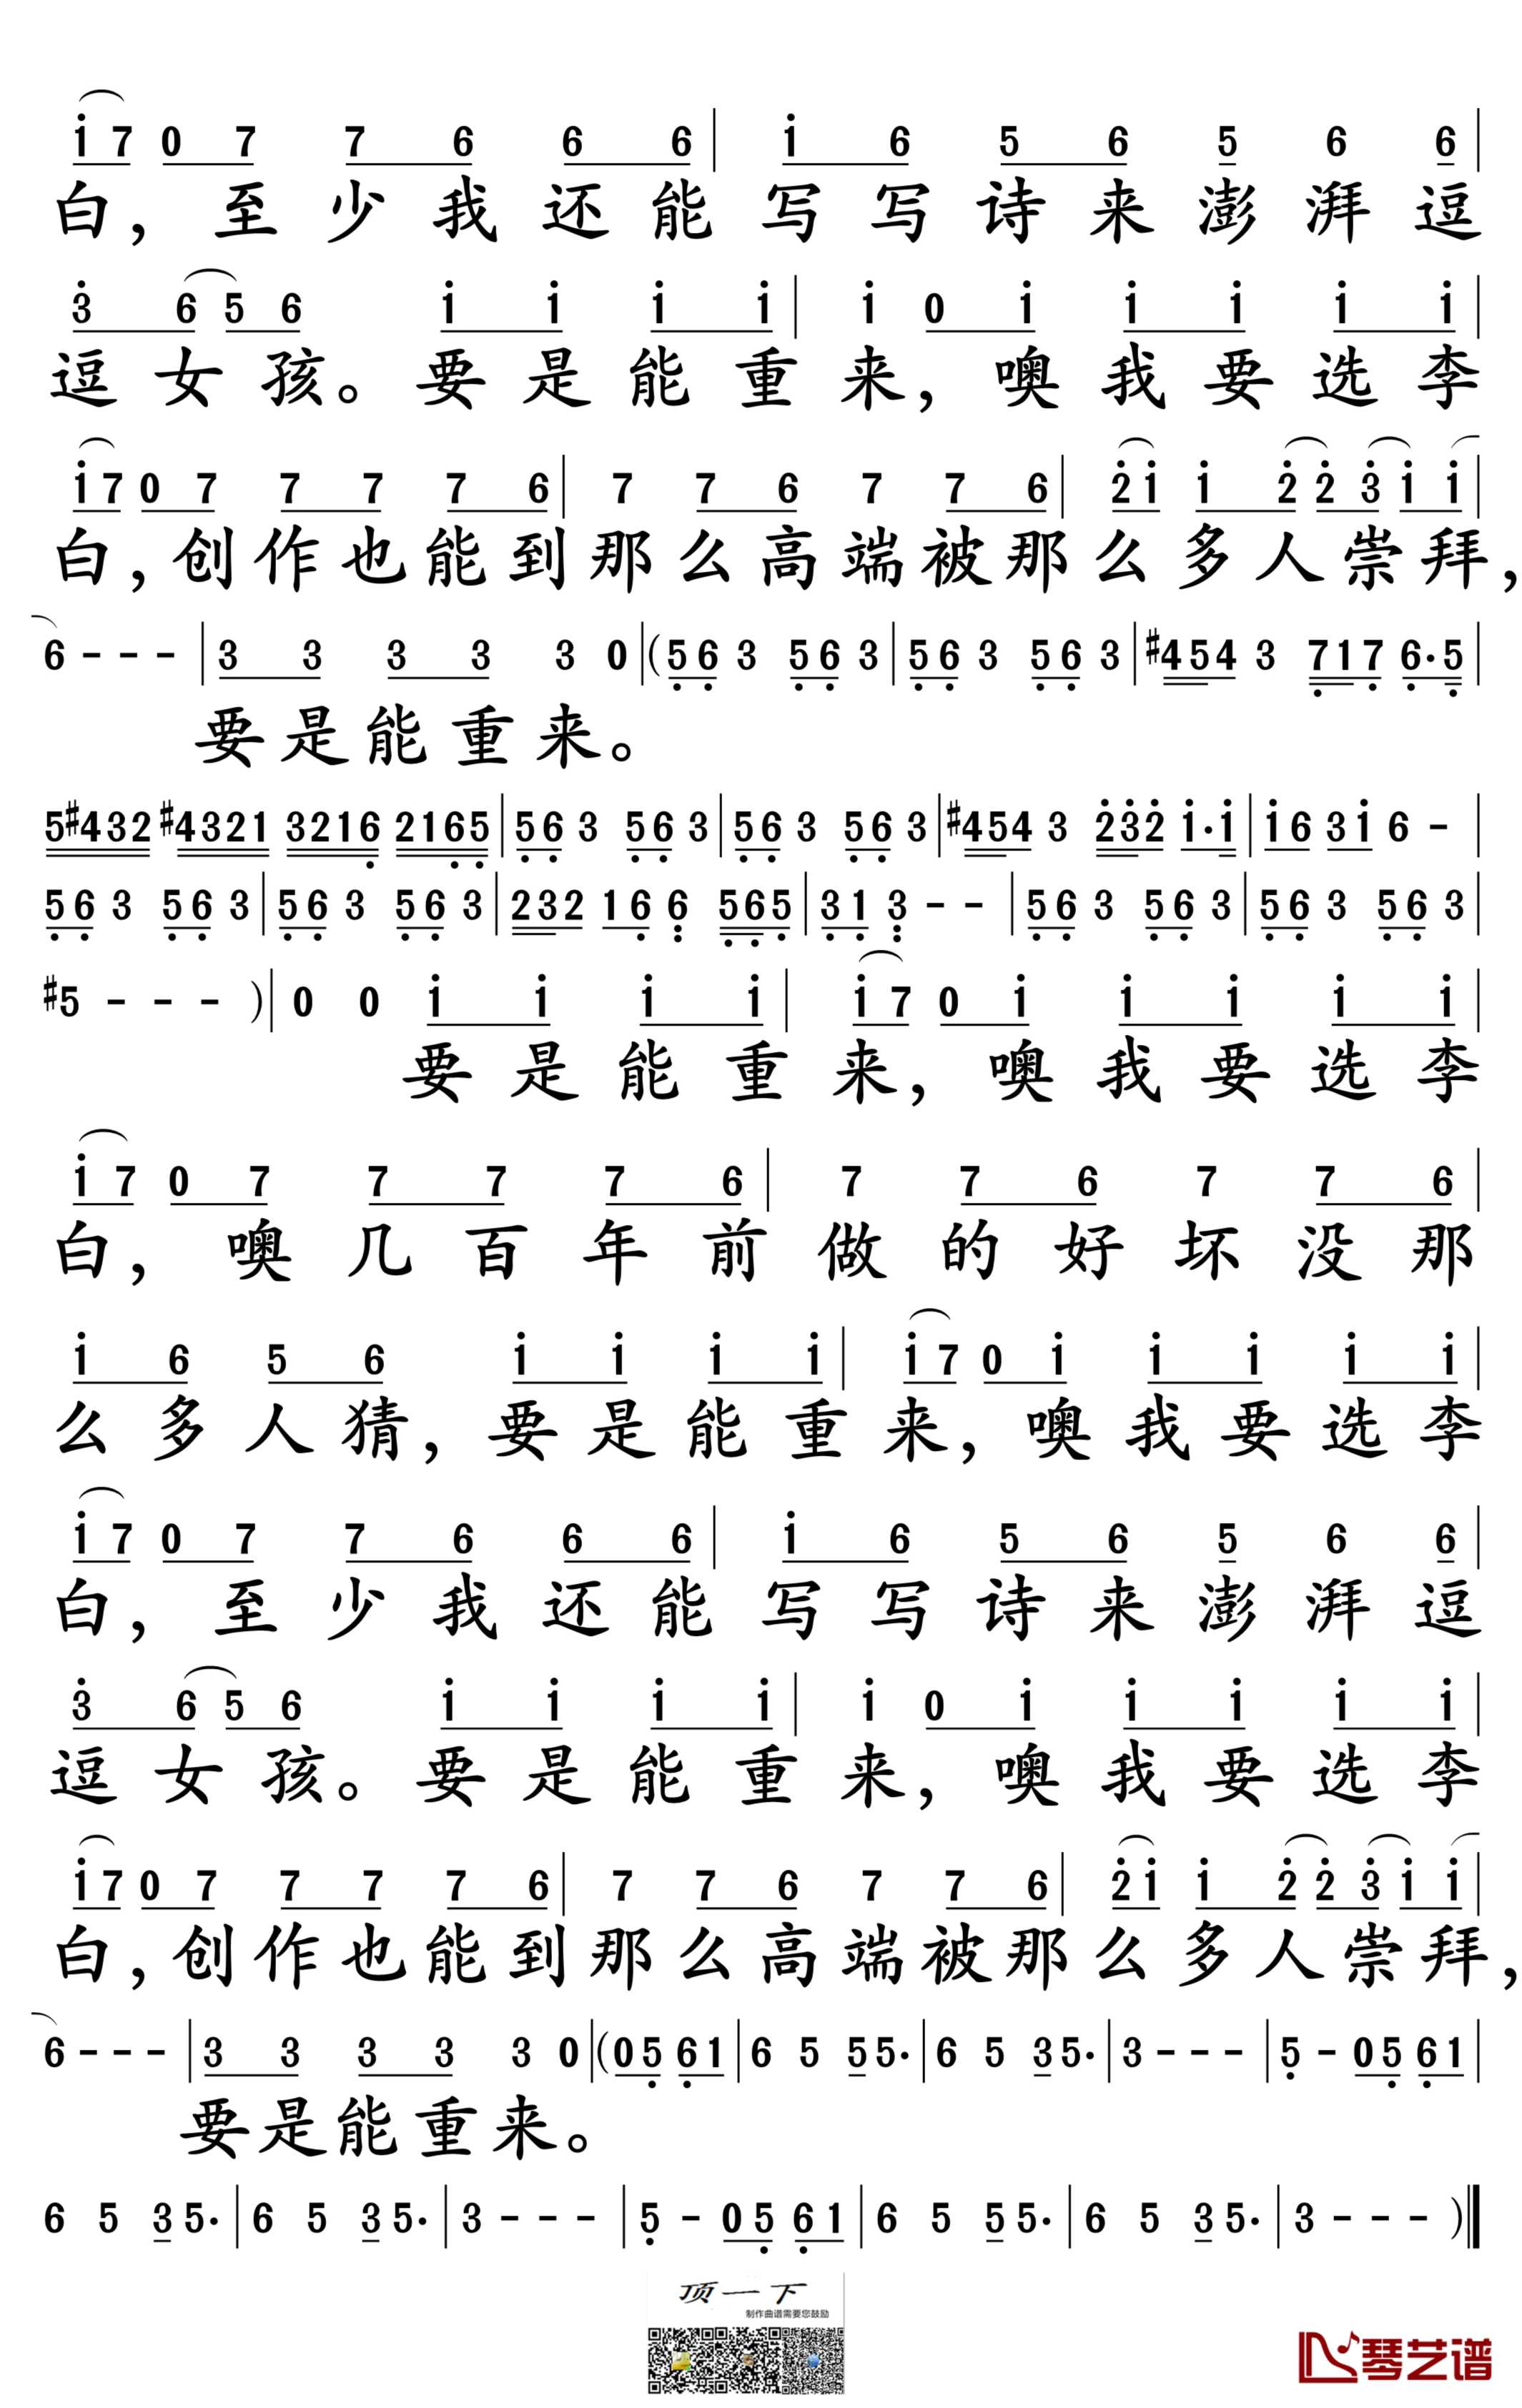 i 7 0 7 7 6 6 6 | i 6 5 6 5 6 6 |
白，至少我还能写写诗来澎湃逗
3 6 5 6 i i i i | i 0 i i i i i |
逗女孩。要是能重来，噢我要选李
i 7 0 7 7 7 7 6 | 7 7 6 7 7 6 | 2 i i 2 2 3 i i |
白，创作也能到那么高端被那么多人崇拜，
6 - - - | 3 3 3 3 3 0 | ( 5 6 3 5 6 3 | 5 6 3 5 6 3 | #4 5 4 3 7 1 7 6 · 5 |
要是能重来。
5 #4 3 2 #4 3 2 1 3 2 1 6 2 1 6 5 | 5 6 3 5 6 3 | 5 6 3 5 6 3 | #4 5 4 3 2 3 2 i · i | i 6 3 i 6 - |
5 6 3 5 6 3 | 5 6 3 5 6 3 | 2 3 2 1 6 6 5 6 5 | 3 1 3 - - | 5 6 3 5 6 3 | 5 6 3 5 6 3 |
#5 - - - ) | 0 0 i i i i | i 7 0 i i i i i |
要是能重来，噢我要选李
i 7 0 7 7 7 7 6 | 7 7 6 7 7 6 |
白，噢几百年前做的好坏没那
i 6 5 6 i i i i | i 7 0 i i i i i |
么多人猜，要是能重来，噢我要选李
i 7 0 7 7 6 6 6 | i 6 5 6 5 6 6 |
白，至少我还能写写诗来澎湃逗
3 6 5 6 i i i i | i 0 i i i i i |
逗女孩。要是能重来，噢我要选李
i 7 0 7 7 7 7 6 | 7 7 6 7 7 6 | 2 i i 2 2 3 i i |
白，创作也能到那么高端被那么多人崇拜，
6 - - - | 3 3 3 3 3 0 | ( 0 5 6 1 | 6 5 5 5 · | 6 5 3 5 · | 3 - - - | 5 - 0 5 6 1 |
要是能重来。
6 5 3 5 · | 6 5 3 5 · | 3 - - - | 5 - 0 5 6 1 | 6 5 5 5 · | 6 5 3 5 · | 3 - - - )
顶一下
制作曲谱需要您鼓励
琴艺谱